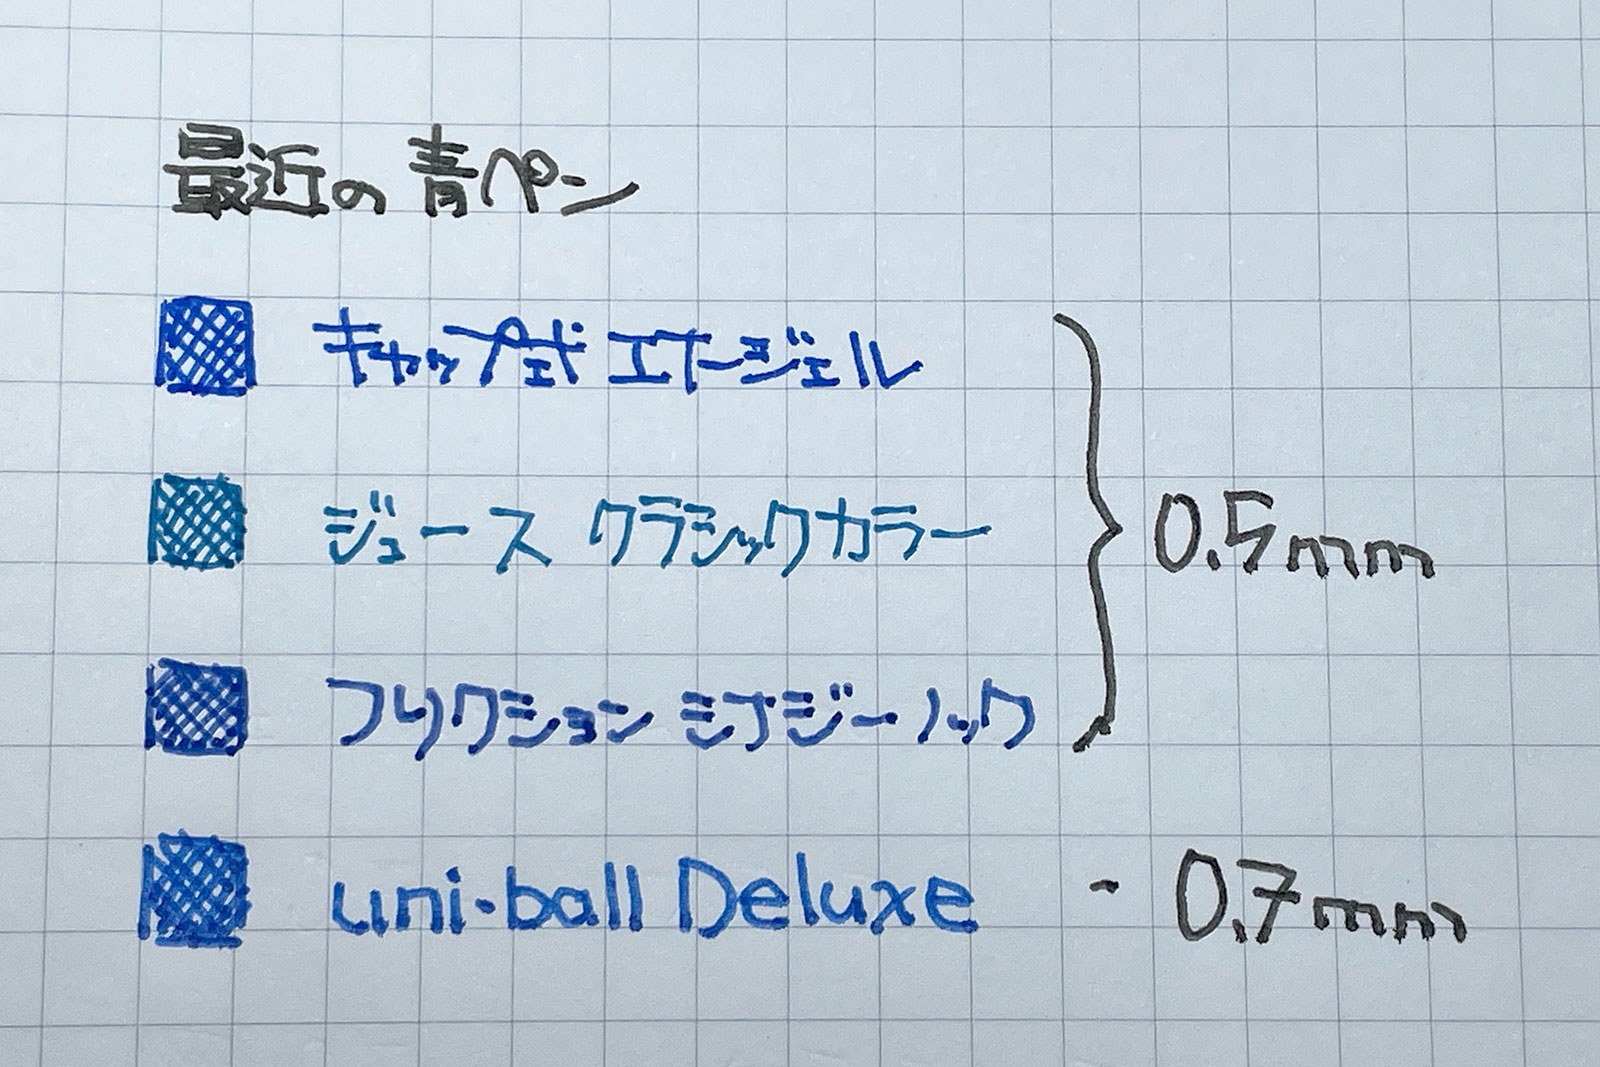 最近の青ペン
キャップ式 エナージェル
ジュース クラシックカラー
フリクション シナジーノック
0.5mm
uni-ball Deluxe - 0.7mm